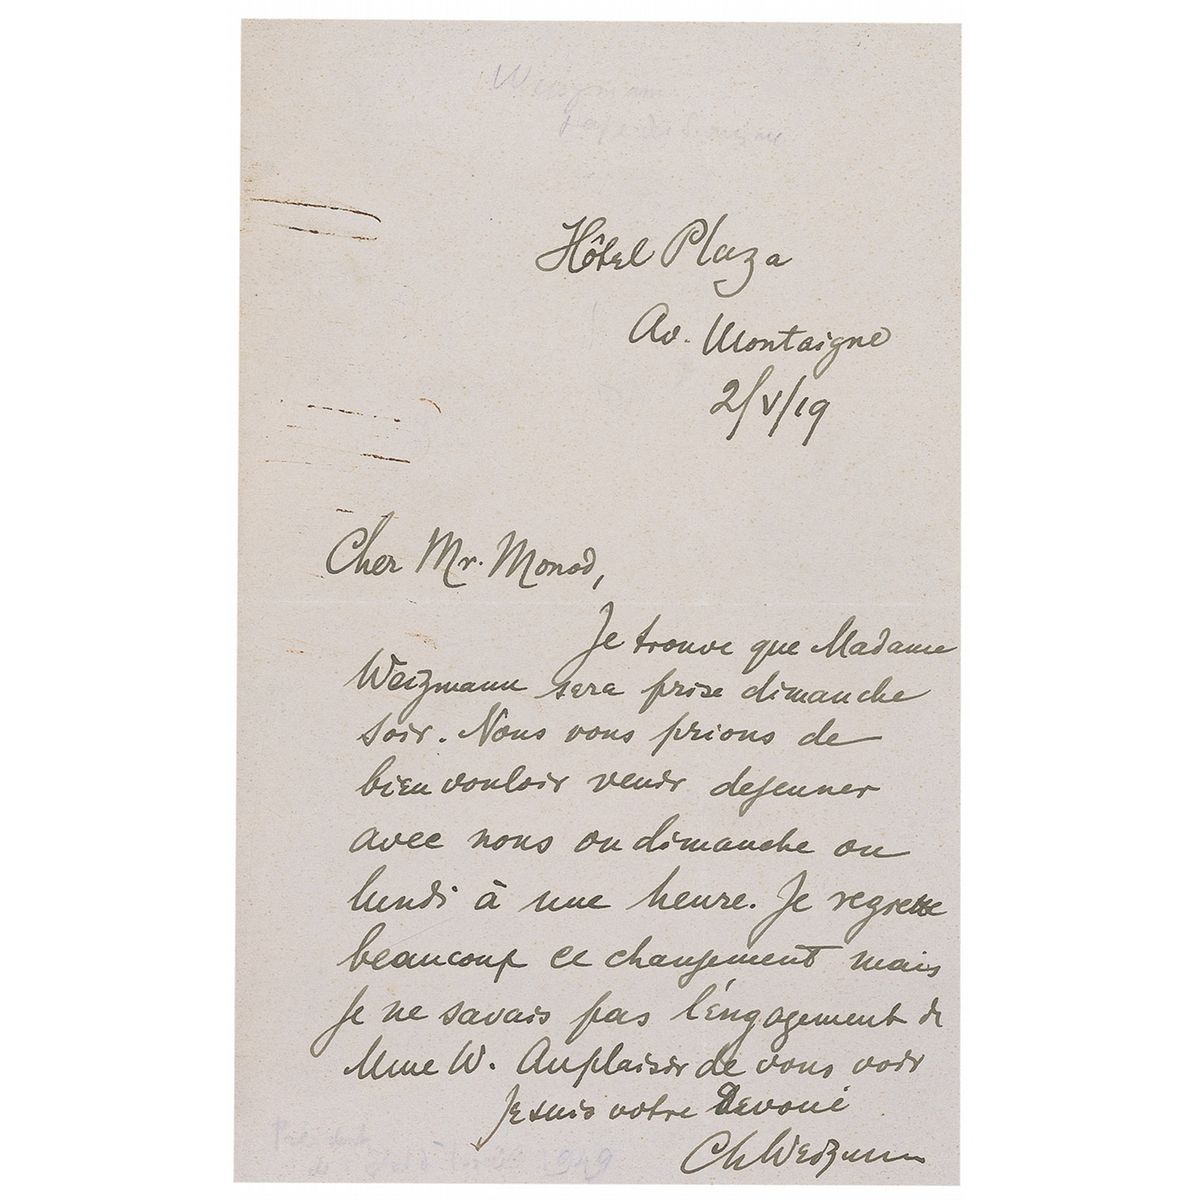 Weizmann
Hôtel Plaza
Av. Montaigne
2/V/19
Cher Mr. Monod,
Je trouve que Madame
Weizmann sera prise dimanche
soir. Nous vous prions de
bien vouloir venir dejeuner
avec nous ou dimanche ou
lundi à une heure. Je regrette
beaucoup ce changement mais
je ne savais pas l'éngagement de
Mme W. Au plaisir de vous voir
Je suis votre Devoué
Ch Weizmann
1949